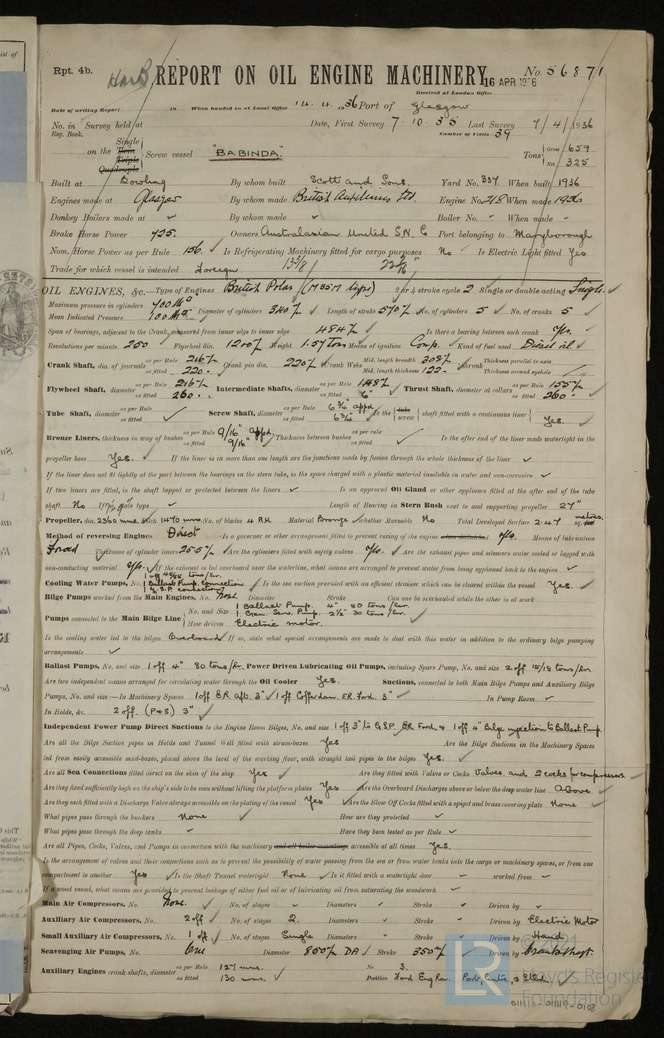 Rpt. 4b. REPORT ON OIL ENGINE MACHINERY. No. 56871
16 APR 1936
Received at London Office
Date of writing Report 19 When handed in at Local Office 14. 4. 1936 Port of Glasgow
No. in Survey held at Date, First Survey 7. 10. 35 Last Survey 7/4/1936
Reg. Book. Number of Visits 39
Single
on the Twin Triple Quadruple Screw vessel "BABINDA." Tons Gross 659 Net 325
Built at Bowling By whom built Scott and Sons. Yard No. 337 When built 1936
Engines made at Glasgow By whom made British Auxiliaries Ltd. Engine No. 218 When made 1936
Donkey Boilers made at ✓ By whom made ✓ Boiler No. When made
Brake Horse Power 725. Owners Australasian United S.N. C Port belonging to Maryborough
Nom. Horse Power as per Rule 156. Is Refrigerating Machinery fitted for cargo purposes No Is Electric Light fitted Yes
Trade for which vessel is intended Foreign 13 3/8
OIL ENGINES, &c.—Type of Engines British Polar (M35M type) 2 or 4 stroke cycle 2 Single or double acting Single
Maximum pressure in cylinders Diameter of cylinders 340 Length of stroke 570 No. of cylinders 5 No. of cranks 5
Mean Indicated Pressure
Span of bearings, adjacent to the Crank, measured from inner edge to inner edge 484 Is there a bearing between each crank yes.
Revolutions per minute 250 Flywheel dia. Weight 1.57 tons Means of ignition Comp. Kind of fuel used Diesel oil
Crank Shaft, dia. of journals as per Rule 216 as fitted 220 Crank pin dia. 220 Crank Webs Mid. length breadth 308 Mid. length thickness 122 shrunk Thickness parallel to axis Thickness around eyehole
Flywheel Shaft, diameter as per Rule 216 as fitted 260 Intermediate Shafts, diameter as per Rule 148 as fitted 6" Thrust Shaft, diameter at collars as per Rule 155 as fitted 260
Tube Shaft, diameter as per Rule as fitted ✓ Screw Shaft, diameter as per Rule 6 3/4 appd as fitted 6 3/4 Is the tube screw shaft fitted with a continuous liner Yes.
Bronze Liners, thickness in way of bushes as per Rule 9/16" appd. as fitted 9/16" Thickness between bushes as per rule as fitted ✓ Is the after end of the liner made watertight in the
propeller boss Yes. If the liner is in more than one length are the junctions made by fusion through the whole thickness of the liner ✓
If the liner does not fit tightly at the part between the bearings in the stern tube, is the space charged with a plastic material insoluble in water and non-corrosive ✓
If two liners are fitted, is the shaft lapped or protected between the liners ✓ Is an approved Oil Gland or other appliance fitted at the after end of the tube
shaft No If so, state type ✓ Length of Bearing in Stern Bush next to and supporting propeller 27"
Propeller, dia. 2360 mms. Pitch 1470 mms. No. of blades 4 R.H. Material Bronze whether Moveable No Total Developed Surface 2.47 metres
Method of reversing Engines Direct Is a governor or other arrangement fitted to prevent racing of the engine when declutched yes. Means of lubrication
Forced Thickness of cylinder liners 25.5 Are the cylinders fitted with safety valves yes. Are the exhaust pipes and silencers water cooled or lagged with
non-conducting material yes. If the exhaust is led overboard near the waterline, what means are arranged to prevent water being syphoned back to the engine ✓
Cooling Water Pumps, No. 1 Ballast Pump connection & G.S.P. connection Is the sea suction provided with an efficient strainer which can be cleared within the vessel Yes.
Bilge Pumps worked from the Main Engines, No. None Diameter Stroke Can one be overhauled while the other is at work
Pumps connected to the Main Bilge Line No. and Size 1 Ballast Pump. 4" 80 tons/hr. 1 Gen. Serv. Pump. 2 1/2" 30 tons/hr.
How driven Electric motor.
Is the cooling water led to the bilges Overboard If so, state what special arrangements are made to deal with this water in addition to the ordinary bilge pumping
arrangements ✓
Ballast Pumps, No. and size 1 off 4" 80 tons/hr. Power Driven Lubricating Oil Pumps, including Spare Pump, No. and size 2 off 15/18 tons/hr
Are two independent means arranged for circulating water through the Oil Cooler Yes. Suctions, connected to both Main Bilge Pumps and Auxiliary Bilge
Pumps, No. and size:—In Machinery Spaces 1 off E.R. aft. 3" 1 off Cofferdam. E.R. Ford. 3" In Pump Room ✓
In Holds, &c. 2 off. (P&S) 3"
Independent Power Pump Direct Suctions to the Engine Room Bilges, No. and size 1 off 3" to G.S.P. E.R Ford & 1 off 4" Bilge injection to Ballast Pump.
Are all the Bilge Suction pipes in Holds and Tunnel Well fitted with strum-boxes Yes Are the Bilge Suctions in the Machinery Spaces
led from easily accessible mud-boxes, placed above the level of the working floor, with straight tail pipes to the bilges Yes.
Are all Sea Connections fitted direct on the skin of the ship Yes Are they fitted with Valves or Cocks Valves, and 2 cocks for compressors.
Are they fixed sufficiently high on the ship's side to be seen without lifting the platform plates Yes Are the Overboard Discharges above or below the deep water line Above
Are they each fitted with a Discharge Valve always accessible on the plating of the vessel Yes Are the Blow Off Cocks fitted with a spigot and brass covering plate None
What pipes pass through the bunkers None How are they protected ✓
What pipes pass through the deep tanks ✓ Have they been tested as per Rule ✓
Are all Pipes, Cocks, Valves, and Pumps in connection with the machinery and all boiler mountings accessible at all times Yes.
Is the arrangement of valves and their connections such as to prevent the possibility of water passing from the sea or from water tanks into the cargo or machinery spaces, or from one
compartment to another Yes Is the Shaft Tunnel watertight None Is it fitted with a watertight door ✓ worked from ✓
If a wood vessel, what means are provided to prevent leakage of either fuel oil or of lubricating oil from saturating the woodwork ✓
Main Air Compressors, No. None. No. of stages ✓ Diameters ✓ Stroke ✓ Driven by ✓
Auxiliary Air Compressors, No. 2 off No. of stages 2. Diameters Stroke Driven by Electric Motor
Small Auxiliary Air Compressors, No. 1 off No. of stages Single Diameters Stroke Driven by Hand
Scavenging Air Pumps, No. One Diameter 850 DA Stroke 350 Driven by Crankshaft.
Auxiliary Engines crank shafts, diameter as per Rule 127 mms. as fitted 130 mms. No. 3. Position
© 2021
LR
Lloyd's Register
Foundation
011111-011119-0108